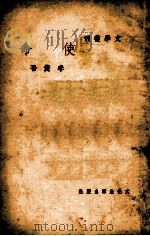 文學叢刊
使命
李健吾
文化生活出版社